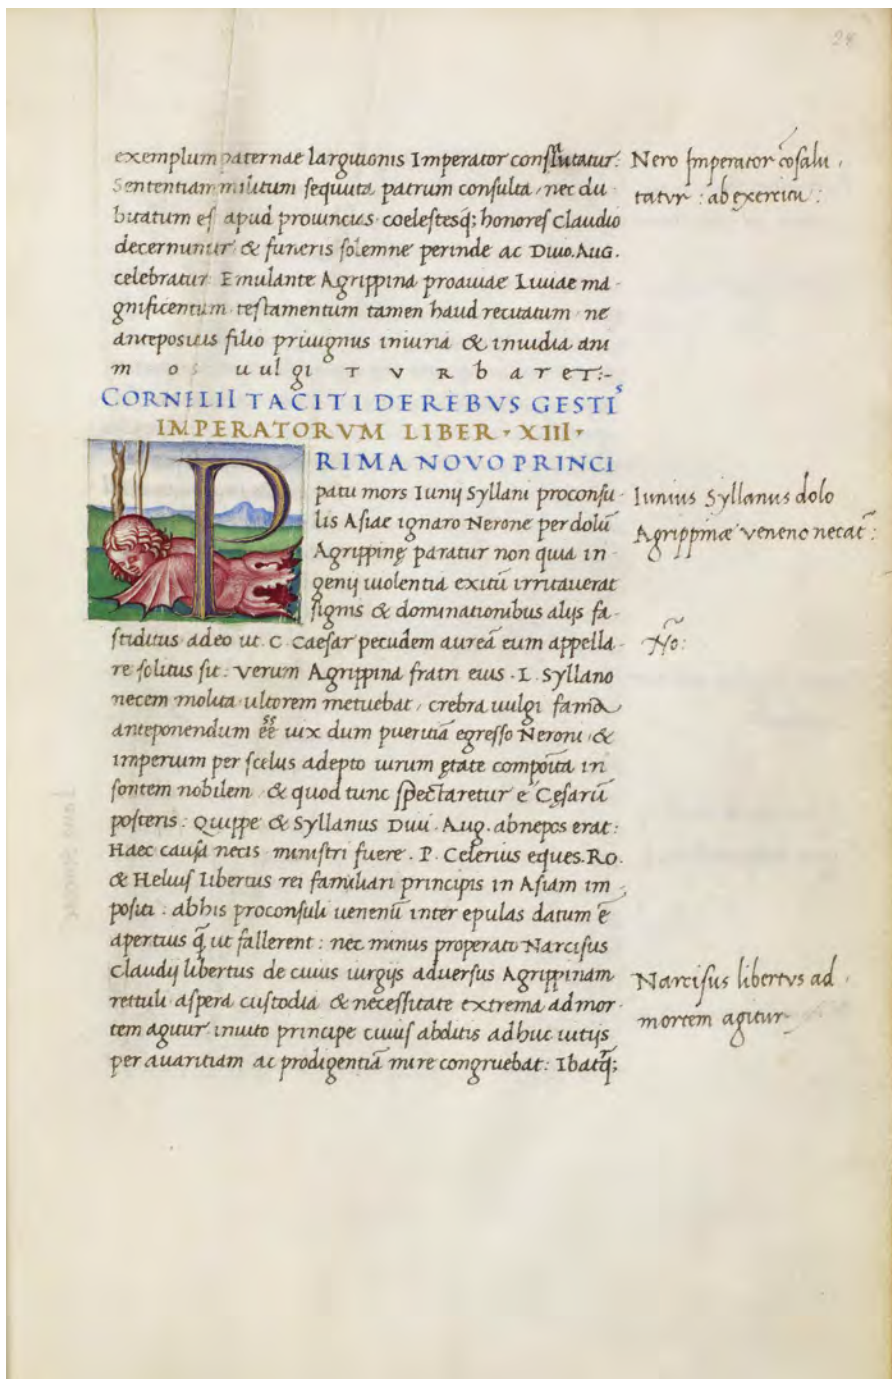 24
exemplum paternae largitionis Imperator consalutatur:
Sententiam militum sequuta patrum consulta, nec du
bitatum est apud prouincias coelestesq; honores Claudio
decernuntur & funeris solemne perinde ac Diuo. AUG.
celebratur Emulante Agrippina proauiae Liuiae ma
gnificentiam testamentum tamen haud recitatum ne
antepositus filio priuignus iniuria & inuidia ani
mos uulgi TVRbareT:-
CORNELII TACITI DE REBVS GESTIS
IMPERATORVM LIBER · XIII ·
PRIMA NOVO PRINCI
patu mors Iunij Syllani proconsu
lis Asiae ignaro Nerone per dolū
Agrippinę paratur non quia in
genij uiolentia exitū irritauerat
signis & dominationibus alijs fa
stiditus adeo ut. C. Caesar pecudem aureā eum appella
re solitus sit: verum Agrippina fratri eius . L. Syllano
necem molita ultorem metuebat, crebra uulgi fama
anteponendum ēē uix dum pueritiā egresso Neroni, &
imperium per scelus adepto uirum ętate compoīta in
sontem nobilem & quod tunc spectaretur e Cęsarū
posteris: Quippe & Syllanus Diui. Aug. abnepos erat:
Haec causa necis ministri fuere. P. Celerius eques. RO.
& Helius libertus rei familiari principis in Asiam im
positi: abhis proconsuli uenenū inter epulas datum ē
apertius q̄ ut fallerent: nec minus properato Narcisus
Claudij libertus de cuius iurgijs aduersus Agrippinam
rettuli aspera custodia & necessitate extrema ad mor
tem agitur inuito principe cuius abditis adhuc uitijs
per auaritiam ac prodigentiā mire congruebat: Ibatq̄;
Nero Imperator cōsalu
tatvr: ab exercitu:
Iunius Syllanus dolo
Agrippinæ veneno necat̄:
Nō:
Narcisus libertvs ad
mortem agitur